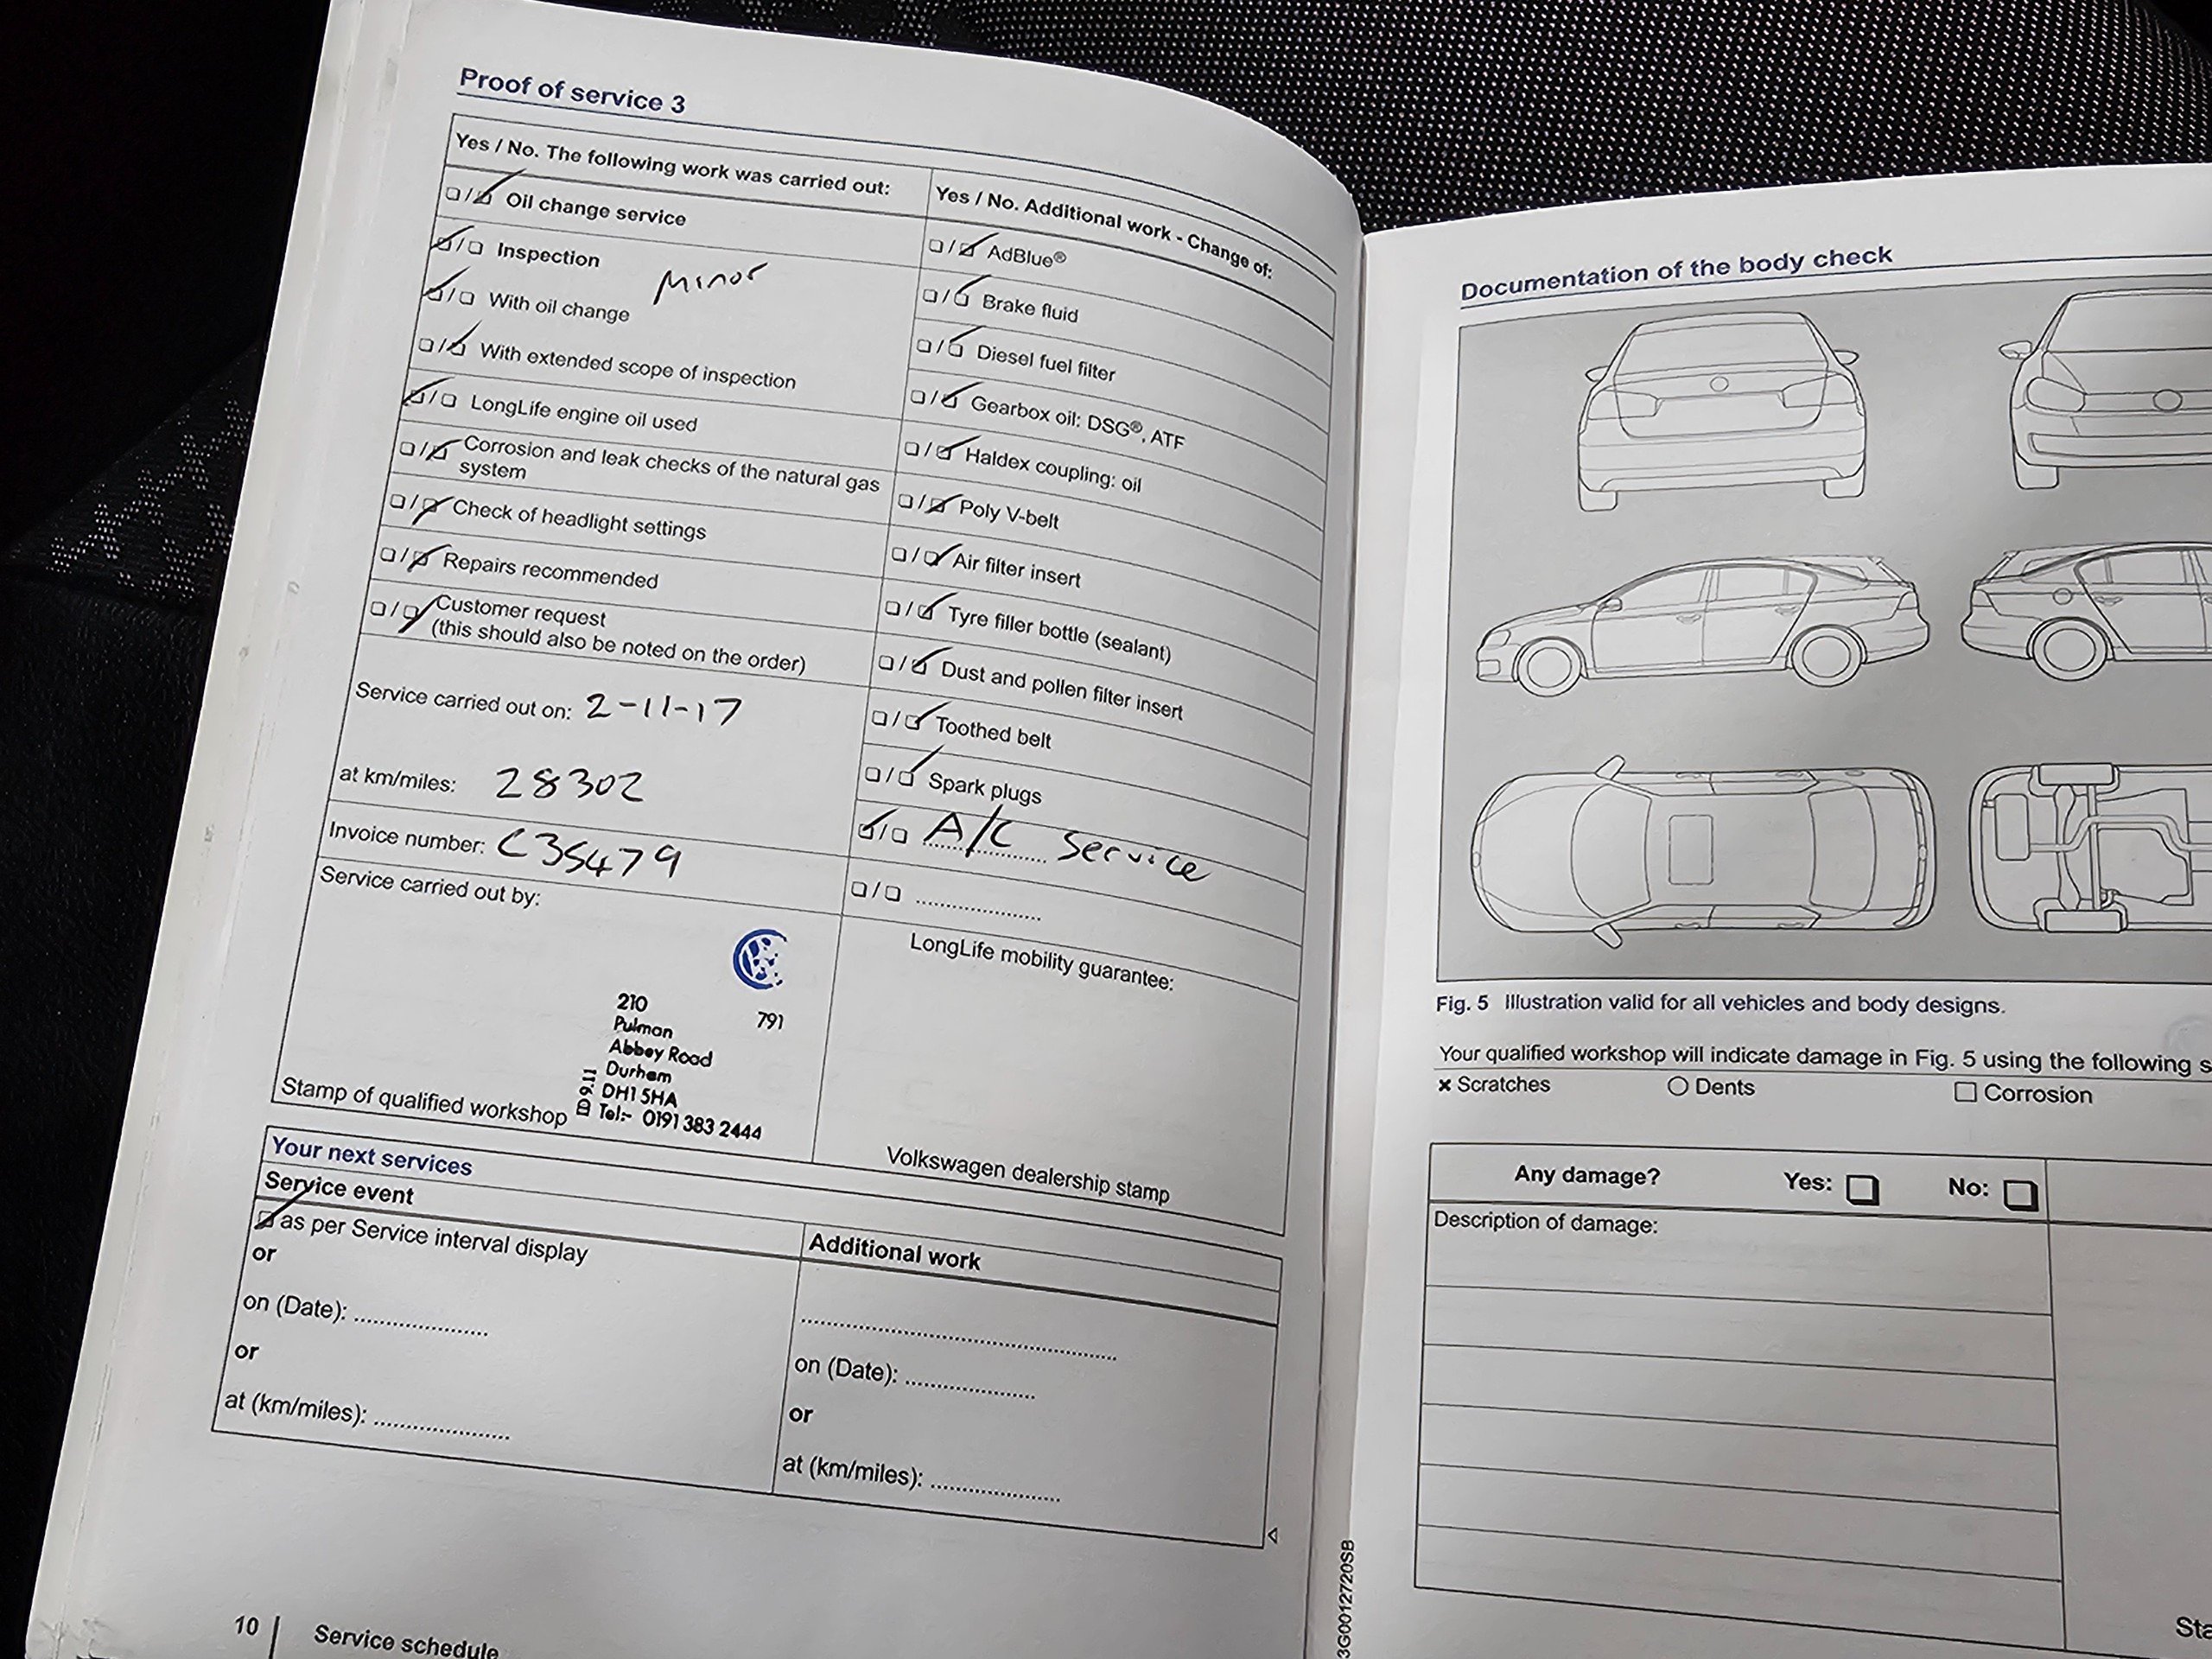 Proof of service 3
Yes / No. The following work was carried out:
☐/☑ Oil change service
☑/☐ Inspection
Minor
☑/☐ With oil change
☐/☑ With extended scope of inspection
☑/☐ LongLife engine oil used
☐/☑ Corrosion and leak checks of the natural gas
system
☐/☑ Check of headlight settings
☐/☑ Repairs recommended
☐/☑ Customer request
(this should also be noted on the order)
Service carried out on: 2-11-17
at km/miles: 28302
Invoice number: C35479
Service carried out by:
210
791
Pulman
Abbey Road
Durham
DH1 5HA
Tel:- 0191 383 2444
Stamp of qualified workshop
Yes / No. Additional work - Change of:
☐/☑ AdBlue®
☐/☑ Brake fluid
☐/☑ Diesel fuel filter
☐/☑ Gearbox oil: DSG®, ATF
☐/☑ Haldex coupling: oil
☐/☑ Poly V-belt
☐/☑ Air filter insert
☐/☑ Tyre filler bottle (sealant)
☐/☑ Dust and pollen filter insert
☐/☑ Toothed belt
☐/☑ Spark plugs
☑/☐ A/C Service
☐/☐ ....................
LongLife mobility guarantee:
Volkswagen dealership stamp
Your next services
Service event
☑ as per Service interval display
or
on (Date): ....................
or
at (km/miles): ....................
Additional work
..................................................
on (Date): ....................
or
at (km/miles): ....................
10 | Service schedule
3G0012720SB
Documentation of the body check
Fig. 5 Illustration valid for all vehicles and body designs.
Your qualified workshop will indicate damage in Fig. 5 using the following s
× Scratches ○ Dents □ Corrosion
Any damage? Yes: ☐ No: ☐
Description of damage:
Sta